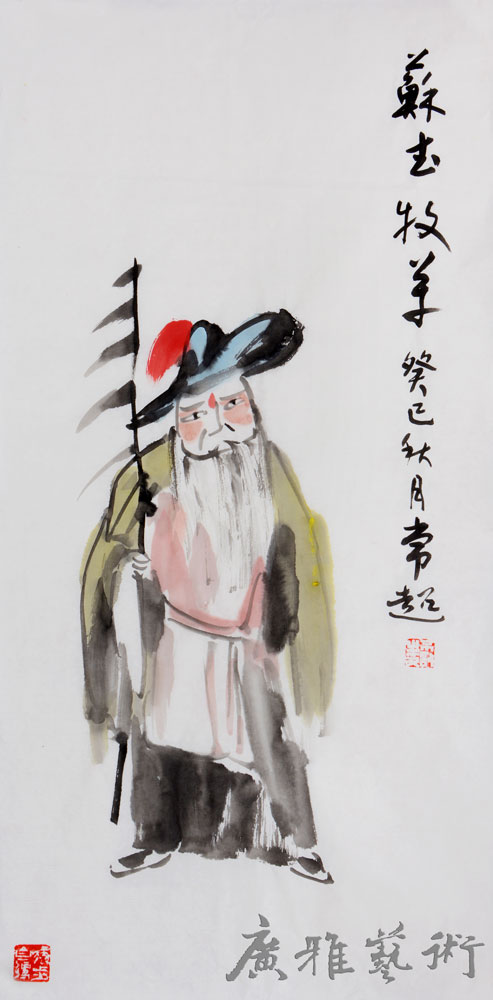 蘇武牧羊 癸巳秋月常超
廣雅藝術